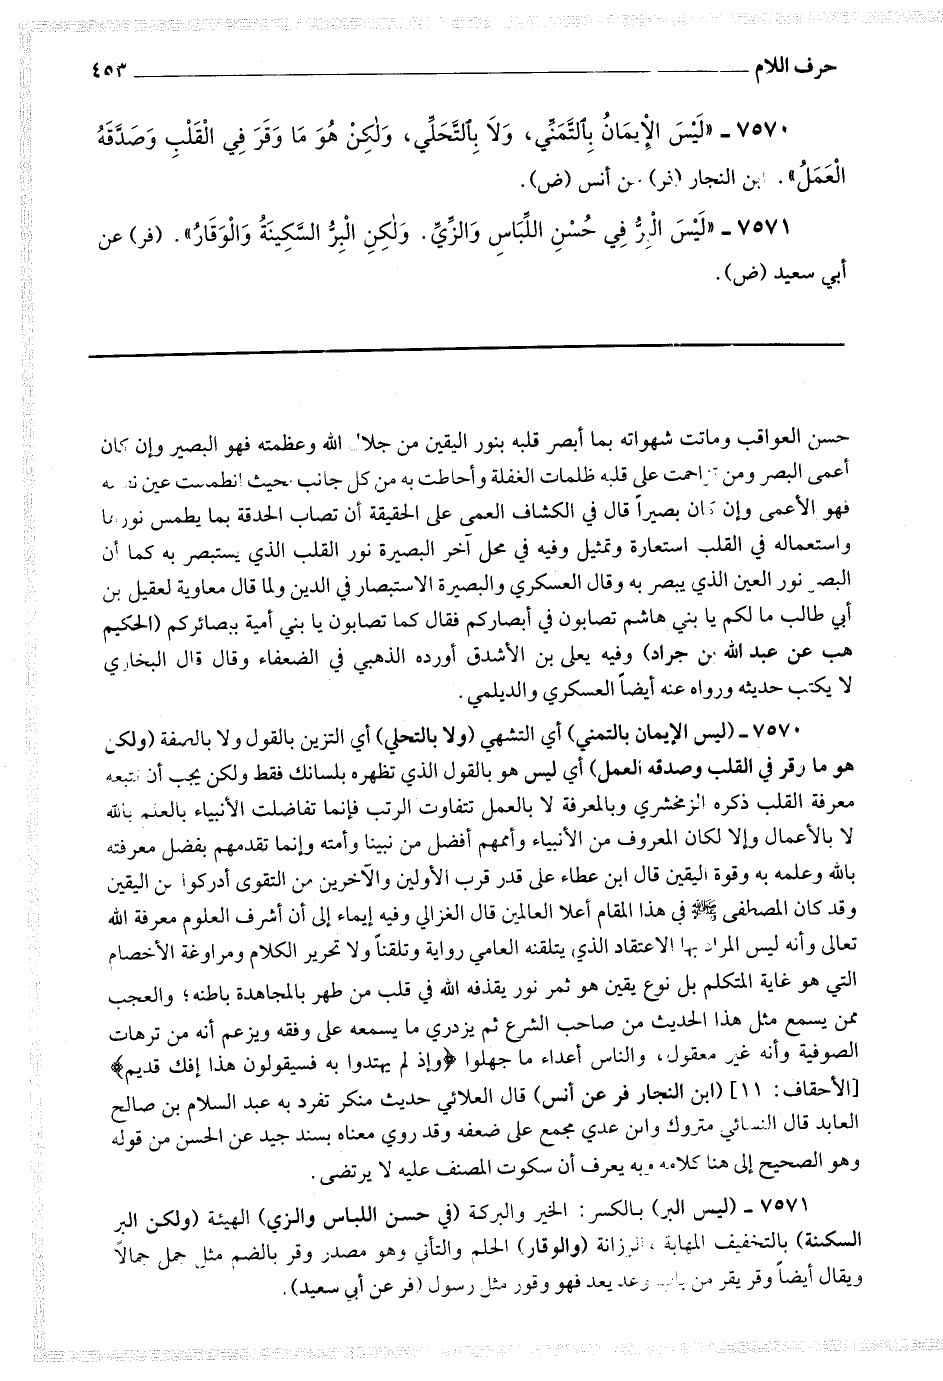 حرف اللام ٤٥٣
٧٥٧٠ ـ «لَيْسَ الْإِيمَانُ بِالتَّمَنِّي، وَلَا بِالتَّحَلِّي، وَلٰكِنْ هُوَ مَا وَقَرَ فِي الْقَلْبِ وَصَدَّقَهُ
الْعَمَلُ». ابن النجار (فر) عن أنس (ض).
٧٥٧١ ـ «لَيْسَ الْبِرُّ فِي حُسْنِ اللِّبَاسِ وَالزِّيِّ. وَلٰكِنِ الْبِرُّ السَّكِينَةُ وَالْوَقَارُ». (فر) عن
أبي سعيد (ض).
حسن العواقب وماتت شهواته بما أبصر قلبه بنور اليقين من جلال الله وعظمته فهو البصير وإن كان
أعمى البصر ومن تزاحمت على قلبه ظلمات الغفلة وأحاطت به من كل جانب بحيث انطمست عين
فهو الأعمى وإن كان بصيراً قال في الكشاف العمى على الحقيقة أن تصاب الحدقة بما يطمس نورها
واستعماله في القلب استعارة وتمثيل وفيه في محل آخر البصيرة نور القلب الذي يستبصر به كما أن
البصر نور العين الذي يبصر به وقال العسكري والبصيرة الاستبصار في الدين ولما قال معاوية لعقيل بن
أبي طالب ما لكم يا بني هاشم تصابون في أبصاركم فقال كما تصابون يا بني أمية ببصائركم (الحكيم
هب عن عبد الله بن جراد) وفيه يعلى بن الأشدق أورده الذهبي في الضعفاء وقال قال البخاري
لا يكتب حديثه ورواه عنه أيضاً العسكري والديلمي.
٧٥٧٠ ـ (ليس الإيمان بالتمني) أي التشهي (ولا بالتحلي) أي التزين بالقول ولا بالصفة (ولكن
هو ما وقر في القلب وصدقه العمل) أي ليس هو بالقول الذي تظهره بلسانك فقط ولكن يجب أن تتبعه
معرفة القلب ذكره الزمخشري وبالمعرفة لا بالعمل تتفاوت الرتب فإنما تفاضلت الأنبياء بالعلم بالله
لا بالأعمال وإلا لكان المعروف من الأنبياء وأممهم أفضل من نبينا وأمته وإنما تقدمهم بفضل معرفته
بالله وعلمه به وقوة اليقين قال ابن عطاء على قدر قرب الأولين والآخرين من التقوى أدركوا من اليقين
وقد كان المصطفى ﷺ في هذا المقام أعلا العالمين قال الغزالي وفيه إيماء إلى أن أشرف العلوم معرفة الله
تعالى وأنه ليس المراد بها الاعتقاد الذي يتلقنه العامي رواية وتلقناً ولا تحرير الكلام ومراوغة الأخصام
التي هو غاية المتكلم بل نوع يقين هو ثمر نور يقذفه الله في قلب من طهر بالمجاهدة باطنه؛ والعجب
ممن يسمع مثل هذا الحديث من صاحب الشرع ثم يزدري ما يسمعه على وفقه ويزعم أنه من ترهات
الصوفية وأنه غير معقول، والناس أعداء ما جهلوا ﴿وإذ لم يهتدوا به فسيقولون هذا إفك قديم﴾
[الأحقاف: ١١] (ابن النجار فر عن أنس) قال العلائي حديث منكر تفرد به عبد السلام بن صالح
العابد قال النسائي متروك وابن عدي مجمع على ضعفه وقد روي معناه بسند جيد عن الحسن من قوله
وهو الصحيح إلى هنا كلامه وبه يعرف أن سكوت المصنف عليه لا يرتضى.
٧٥٧١ ـ (ليس البر) بالكسر: الخير والبركة (في حسن اللباس والزي) الهيئة (ولكن البر
السكينة) بالتخفيف المهابة والرزانة (والوقار) الحلم والتأني وهو مصدر وقر بالضم مثل جمل جمالاً
ويقال أيضاً وقر يقر من باب وعد يعد فهو وقور مثل رسول (فر عن أبي سعيد).